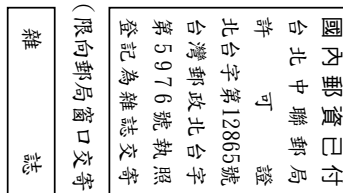 國內郵資已付
台北中聯郵局
許可證
北台字第12865號
台灣郵政北台字
第5976號執照
登記為雜誌交寄
(限向郵局窗口交寄
雜誌